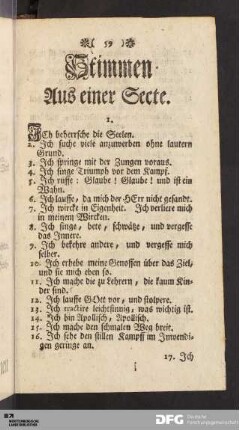 ( 59 )
Stimmen
Aus einer Secte.
1.
Ich beherrsche die Seelen.
2. Ich suche viele anzuwerben ohne lautern
Grund.
3. Ich springe mit der Zungen voraus.
4. Ich singe Triumph vor dem Kampf.
5. Ich ruffe: Glaube! Glaube! und ist ein
Wahn.
6. Ich lauffe, da mich der HErr nicht gesandt.
7. Ich wircke in Eigenheit. Ich verliere mich
in meinem Wircken.
8. Ich singe, bete, schwätze, und vergesse
das Innere.
9. Ich bekehre andere, und vergesse mich
selber.
10. Ich erhebe meine Genossen über das Ziel,
und sie mich eben so.
11. Ich mache die zu Lehrern, die kaum Kin-
der sind.
12. Ich lauffe GOtt vor, und stolpere.
13. Ich tractire leichtsinnig, was wichtig ist.
14. Ich bin Apollisch, Apollisch.
15. Ich mache den schmalen Weg breit.
16. Ich sehe den stillen Kampf im Inwendi-
gen geringe an.
17. Ich
DFG Deutsche
Forschungsgemeinschaft